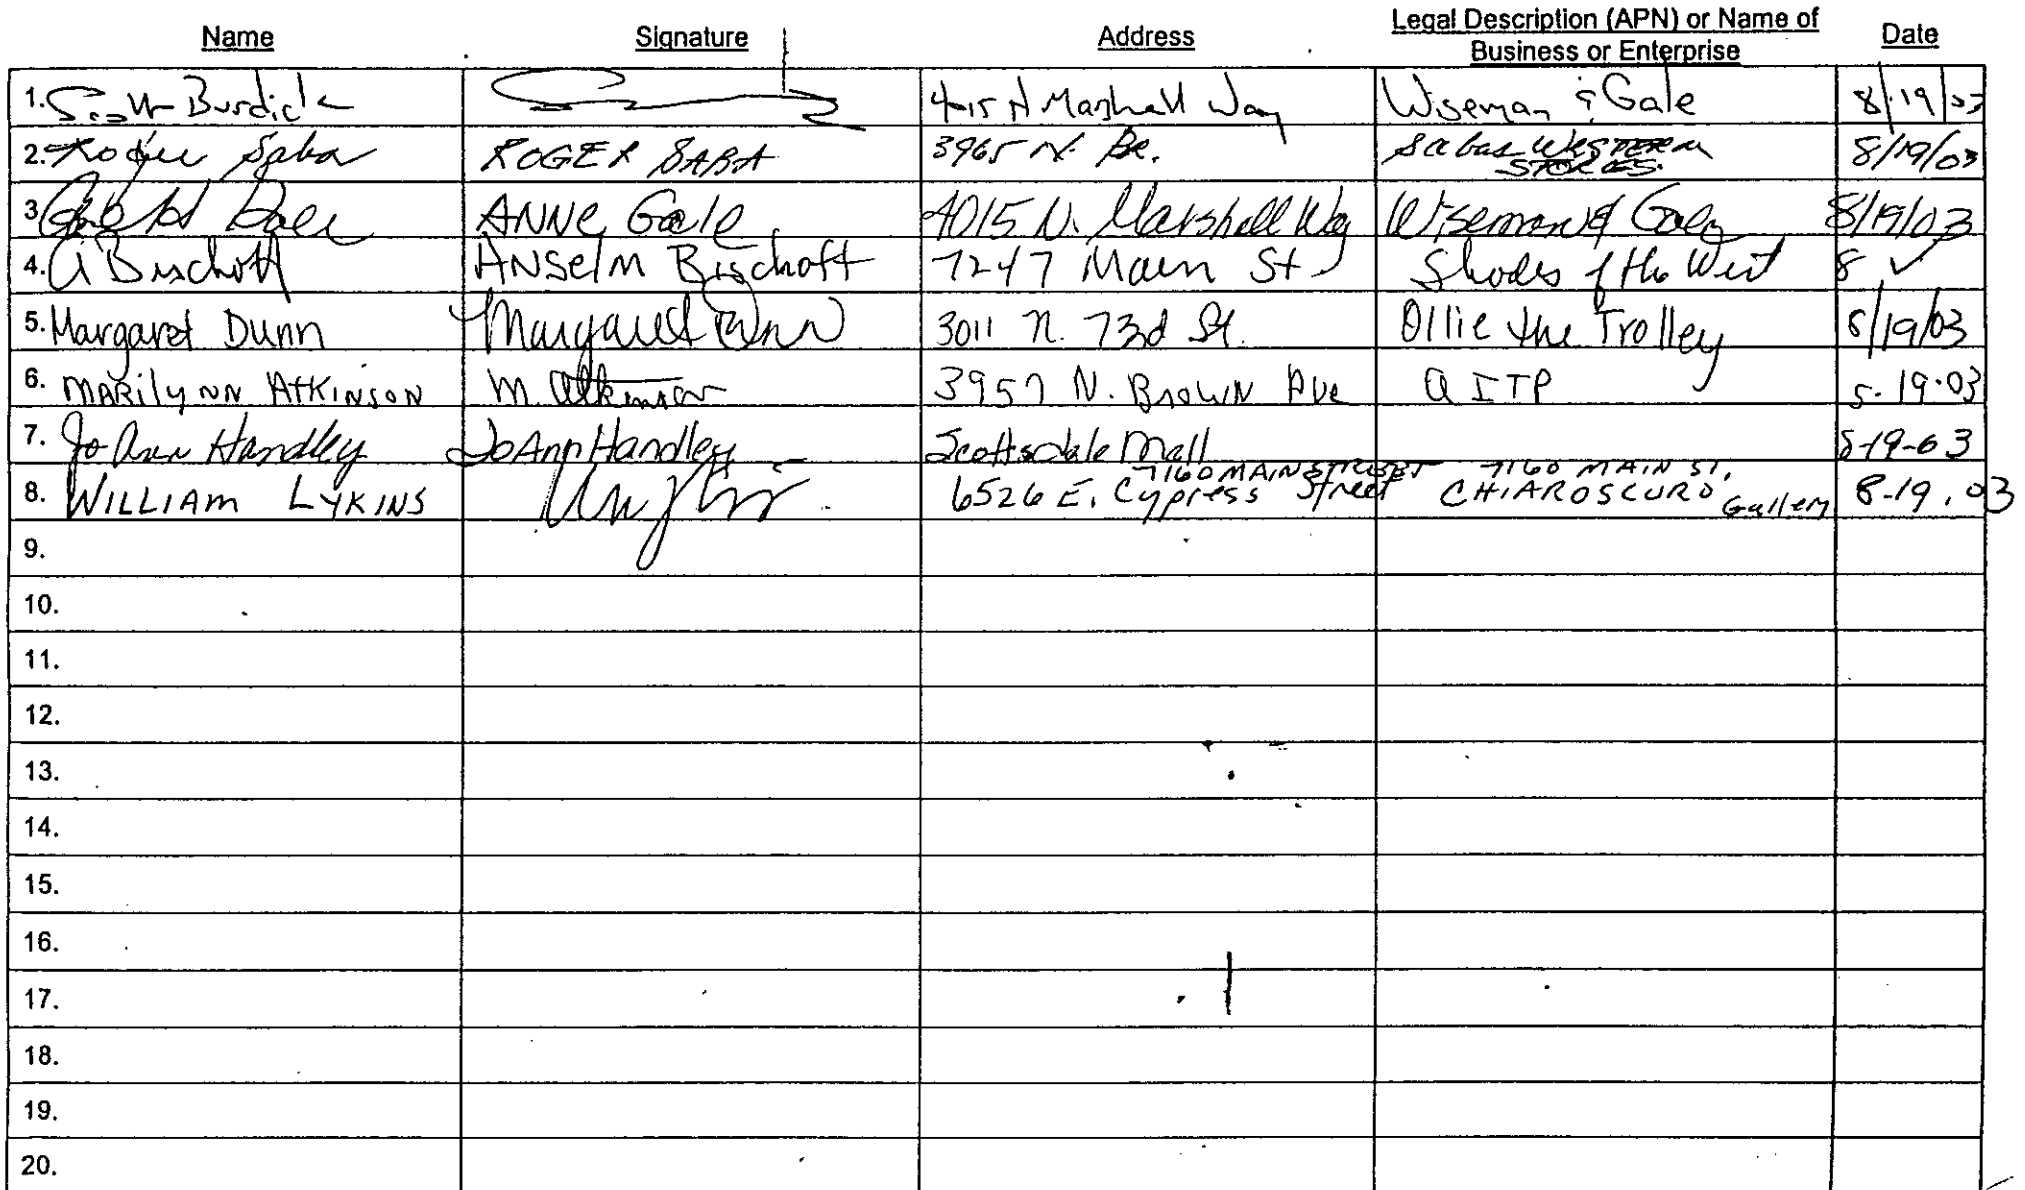 Name Signature Address Legal Description (APN) or Name of Business or Enterprise Date
1. Scott Burdick 4015 N Marshall Way Wiseman & Gale 8/19/03
2. Roger Saba ROGER SABA 3965 N. Br. Sabas WESTERN STORES. 8/19/03
3. Gale ANNE Gale 4015 N. Marshall Way Wiseman & Gale 8/19/03
4. A Bischoff ANSelm Bischoff 7247 Main St Shades of the West 8 ✓
5. Margaret Dunn Margaret Dunn 3011 N. 73rd St. Ollie the Trolley 8/19/03
6. MARilyNN ATKINSON M. Atkinson 3957 N. BROWN Ave Q ITP 8-19-03
7. JoAnn Handley JoAnn Handley Scottsdale Mall 8-19-03
8. WILLIAM LYKINS 7160 MAIN STREET 6526 E. Cypress Street 7160 MAIN ST. CHIAROSCURO Gallery 8-19.03
9.
10.
11.
12.
13.
14.
15.
16.
17.
18.
19.
20.